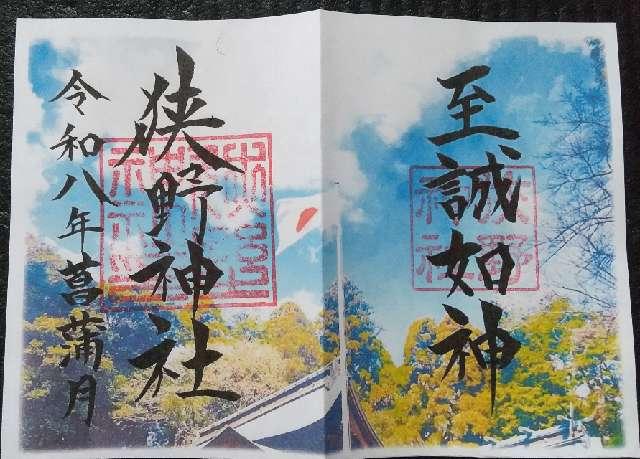 至誠如神
狭野神社
令和八年菖蒲月
狭野
神社